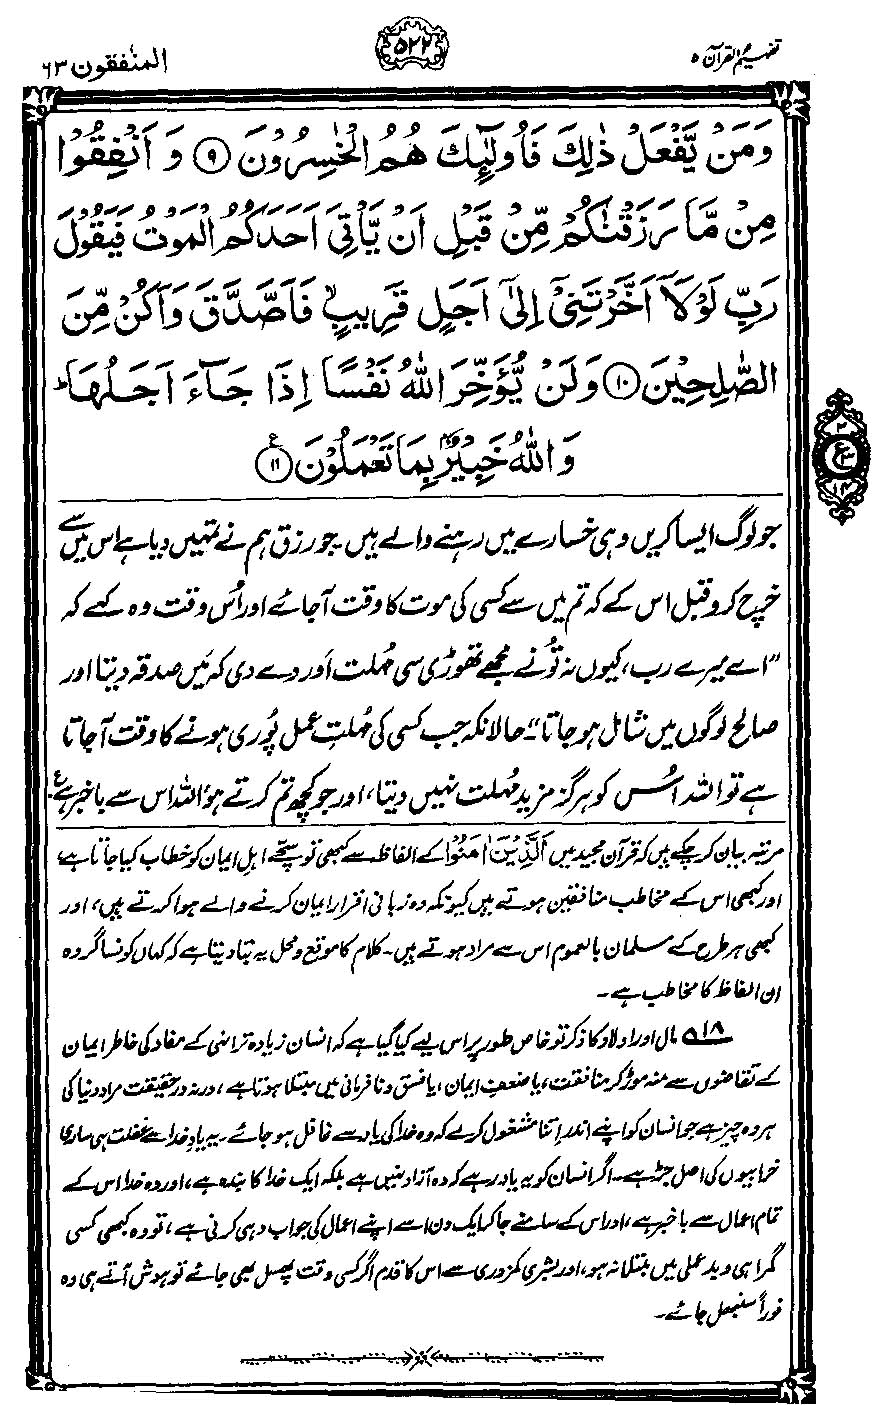 تفہیم القرآن ۵
۵۲۲
المنٰفقون ۶۳
وَمَنْ يَّفْعَلْ ذٰلِكَ فَاُولٰٓئِكَ هُمُ الْخٰسِرُوْنَ ۹ وَ اَنْفِقُوْا
مِنْ مَّا رَزَقْنٰكُمْ مِّنْ قَبْلِ اَنْ يَّاْتِيَ اَحَدَكُمُ الْمَوْتُ فَيَقُوْلَ
رَبِّ لَوْلَآ اَخَّرْتَنِيْٓ اِلٰٓى اَجَلٍ قَرِيْبٍ ۙ فَاَصَّدَّقَ وَاَكُنْ مِّنَ
الصّٰلِحِيْنَ ۱۰ وَلَنْ يُّؤَخِّرَ اللّٰهُ نَفْسًا اِذَا جَآءَ اَجَلُهَا ؕ
وَاللّٰهُ خَبِيْرٌۢ بِمَا تَعْمَلُوْنَ ۱۱ ع
۲
ع ۳
۱۴
جو لوگ ایسا کریں وہی خسارے میں رہنے والے ہیں۔ جو رزق ہم نے تمہیں دیا ہے اس میں سے
خرچ کرو قبل اس کے کہ تم میں سے کسی کی موت کا وقت آجائے اور اُس وقت وہ کہے کہ
”اے میرے رب، کیوں نہ تُو نے مجھے تھوڑی سی مُہلت اَور دے دی کہ مَیں صدقہ دیتا اور
صالح لوگوں میں شامل ہو جاتا“۔ حالانکہ جب کسی کی مُہلتِ عمل پُوری ہونے کا وقت آجاتا
ہے تو اللہ اُس کو ہرگز مزید مُہلت نہیں دیتا، اور جو کچھ تم کرتے ہو، اللہ اس سے باخبر ہے۔ ع
مرتبہ بیان کر چکے ہیں کہ قرآن مجید میں اَلَّذِيْنَ اٰمَنُوْا کے الفاظ سے کبھی تو سچے اہلِ ایمان کو خطاب کیا جاتا ہے،
اور کبھی اس کے مخاطب منافقین ہوتے ہیں کیونکہ وہ زبانی اقرارِ ایمان کرنے والے ہوا کرتے ہیں، اور
کبھی ہر طرح کے مسلمان بالعموم اس سے مراد ہوتے ہیں۔ کلام کا موقع و محل یہ بتا دیتا ہے کہ کہاں کونسا گروہ
ان الفاظ کا مخاطب ہے۔
۱۸ مال اور اولاد کا ذکر تو خاص طور پر اس لیے کیا گیا ہے کہ انسان زیادہ تر انہی کے مفاد کی خاطر ایمان
کے تقاضوں سے منہ موڑ کر منافقت، یا ضعفِ ایمان، یا فسق و نافرمانی میں مبتلا ہوتا ہے، ورنہ درحقیقت مراد دنیا کی
ہر وہ چیز ہے جو انسان کو اپنے اندر اِتنا مشغول کر لے کہ وہ خدا کی یاد سے غافل ہو جائے۔ یہ یادِ خدا سے غفلت ہی ساری
خرابیوں کی اصل جڑ ہے۔ اگر انسان کو یہ یاد رہے کہ وہ آزاد نہیں ہے بلکہ ایک خدا کا بندہ ہے، اور وہ خدا اس کے
تمام اعمال سے باخبر ہے، اور اس کے سامنے جا کر ایک دن اسے اپنے اعمال کی جواب دہی کرنی ہے، تو وہ کبھی کسی
گمراہی و بدعملی میں مبتلا نہ ہو، اور بشری کمزوری سے اس کا قدم اگر کسی وقت پھسل بھی جائے تو ہوش آتے ہی وہ
فوراً سنبھل جائے۔